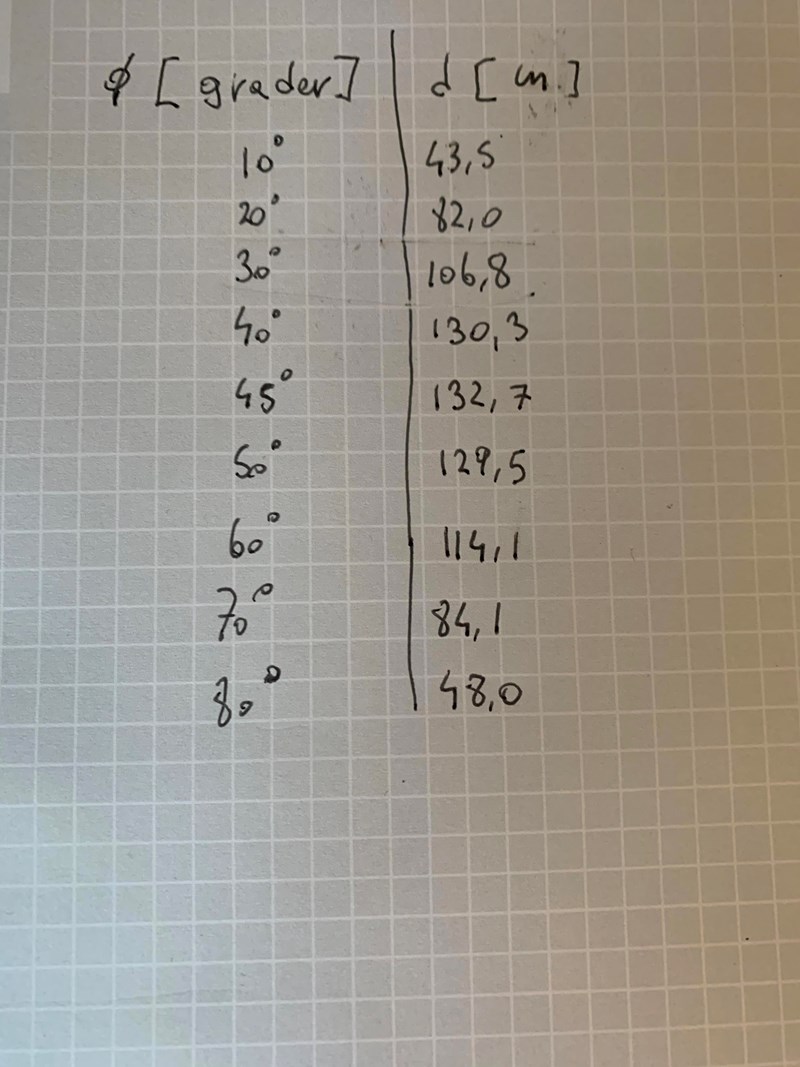 φ [grader] d [cm]
10° 43,5
20° 82,0
30° 106,8
40° 130,3
45° 132,7
50° 129,5
60° 114,1
70° 84,1
80° 48,0